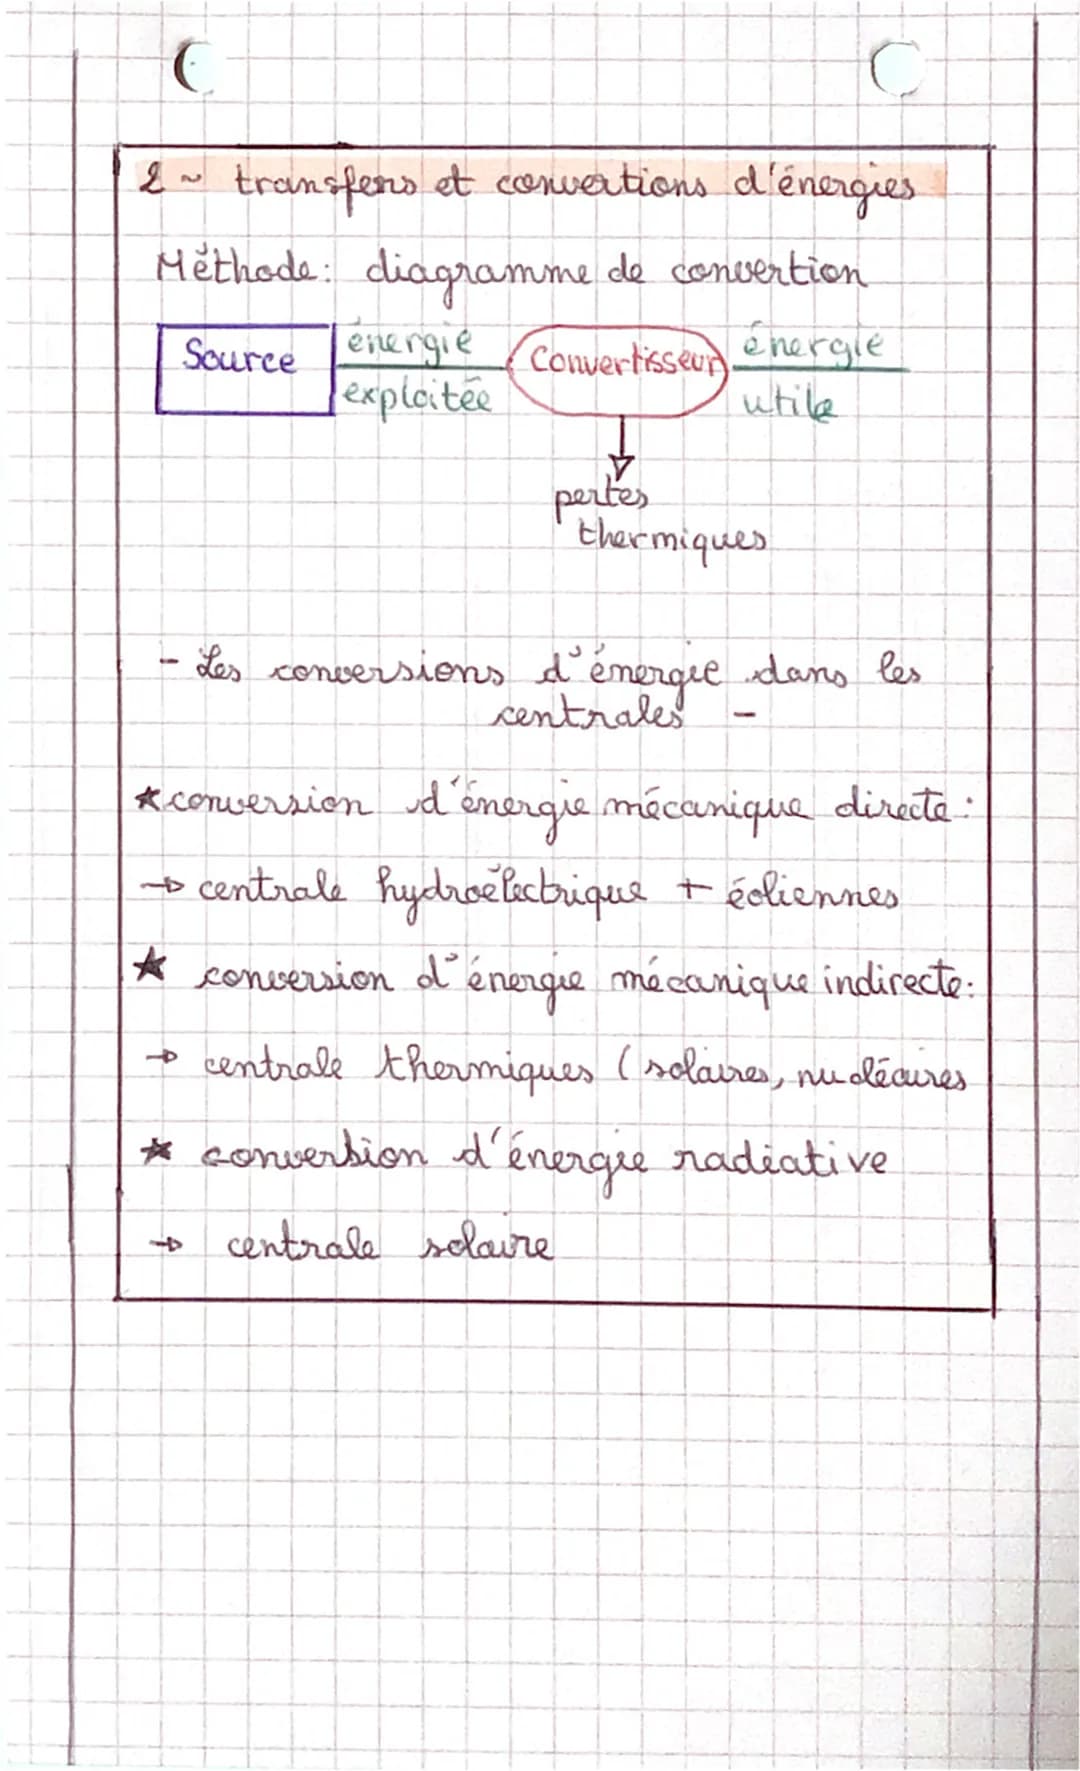 2 ~ transfers et convertions d'énergies
Méthode: diagramme de convertion
Source énergie exploitée Convertisseur énergie utile
pertes
thermiques
- Les conversions d'énergie dans les
centrales -
★ conversion d'énergie mécanique directe :
→ centrale hydroélectrique + éoliennes
★ conversion d'énergie mécanique indirecte:
→ centrale thermiques (solaires, nucléaires
★ conversion d'énergie radiative
→ centrale solaire